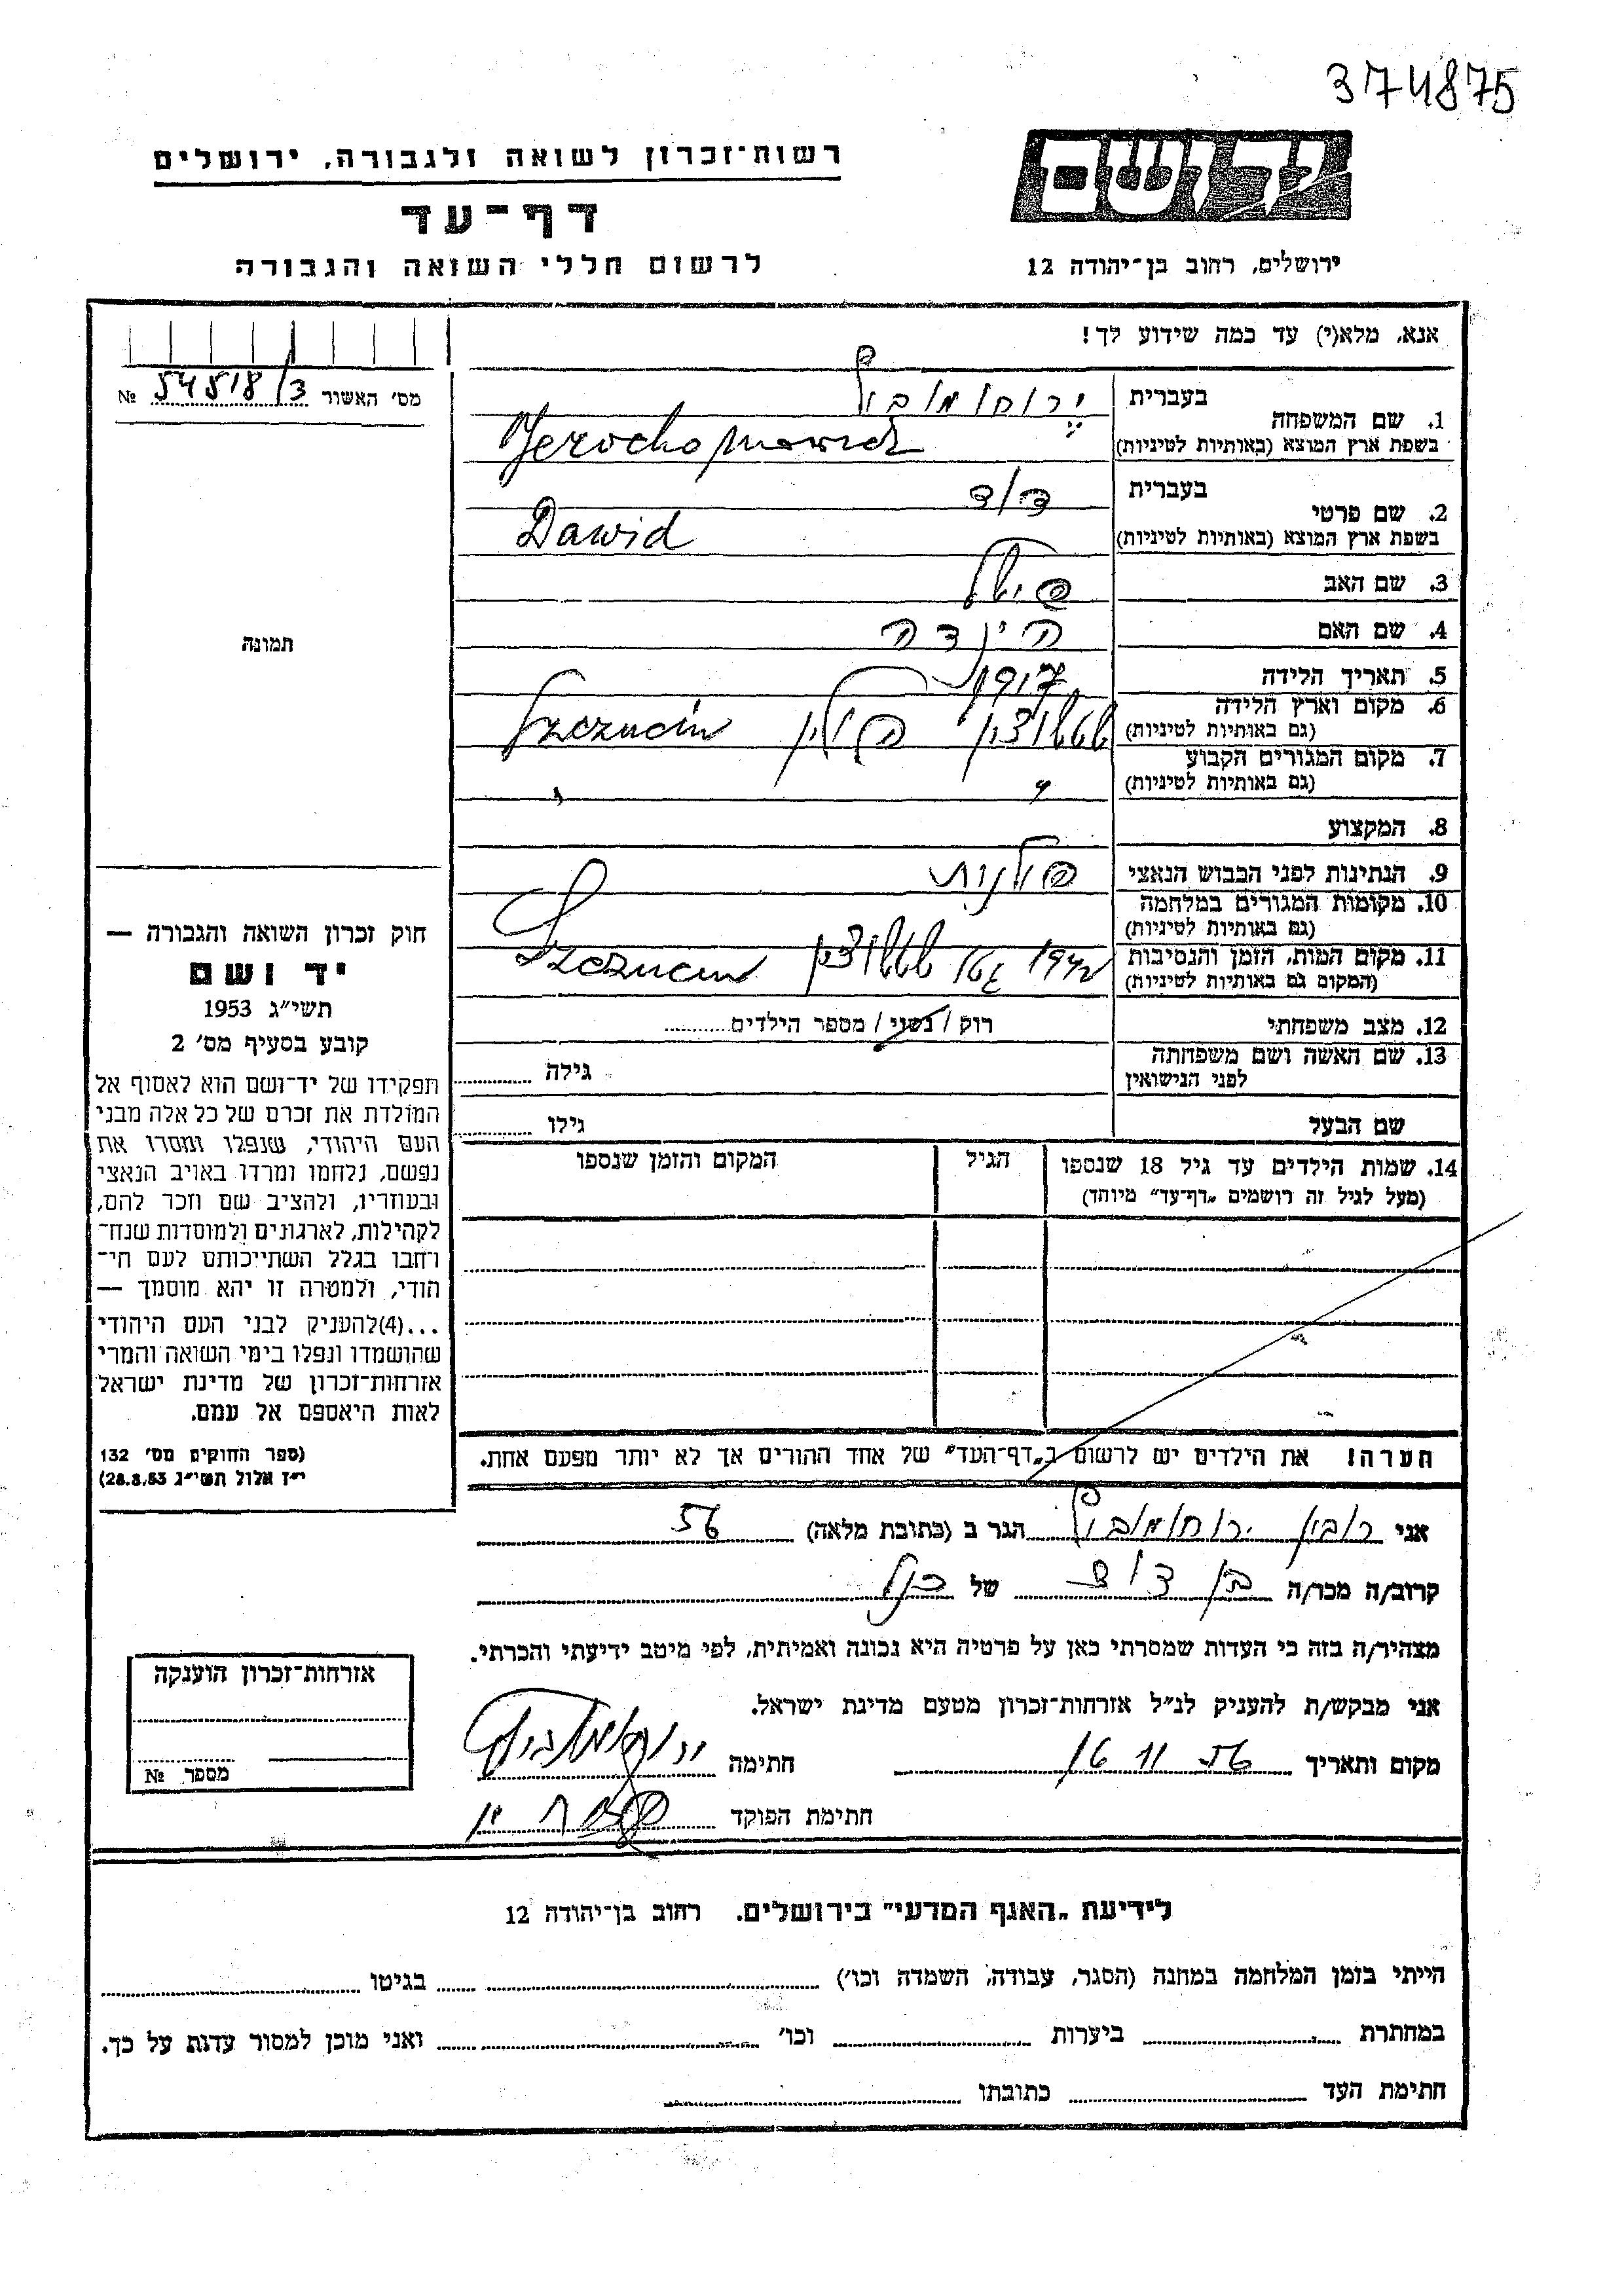 374875
יד ושם
ירושלים, רחוב בן־יהודה 12
רשות־זכרון לשואה ולגבורה, ירושלים
דף־עד
לרשום חללי השואה והגבורה
אנא, מלא(י) עד כמה שידוע לך!
מס׳ האשור 54518/3 №
תמונה
בעברית
1. שם המשפחה
בשפת ארץ המוצא (באותיות לטיניות)
ירוחמוביץ
Jerochomowicz
בעברית דוד
2. שם פרטי
בשפת ארץ המוצא (באותיות לטיניות) Dawid
3. שם האב
4. שם האם הינדה
5. תאריך הלידה 1917
6. מקום וארץ הלידה
(גם באותיות לטיניות) שטשוצין פולין Szczucin
7. מקום המגורים הקבוע
(גם באותיות לטיניות) " "
8. המקצוע
9. הנתינות לפני הכבוש הנאצי פולנית
10. מקומות המגורים במלחמה
(גם באותיות לטיניות)
11. מקום המות, הזמן והנסיבות
(המקום גם באותיות לטיניות) 1942 גטו שטשוצין Szczucin
12. מצב משפחתי רוק / נשוי / מספר הילדים
13. שם האשה ושם משפחתה
לפני הנישואין גילה
שם הבעל גילו
14. שמות הילדים עד גיל 18 שנספו הגיל המקום והזמן שנספו
(מעל לגיל זה רושמים „דף־עד” מיוחד)
הערה! את הילדים יש לרשום ב„דף־העד” של אחד ההורים אך לא יותר מפעם אחת.
חוק זכרון השואה והגבורה —
יד ושם
תשי״ג 1953
קובע בסעיף מס׳ 2
תפקידו של יד־ושם הוא לאסוף אל
המולדת את זכרם של כל אלה מבני
העם היהודי, שנפלו ומסרו את
נפשם, נלחמו ומרדו באויב הנאצי
ובעוזריו, ולהציב שם וזכר להם,
לקהילות, לארגונים ולמוסדות שנח־
רחבו בגלל השתייכותם לעם הי־
הודי, ולמטרה זו יהא מוסמך —
...(4)להעניק לבני העם היהודי
שהושמדו ונפלו בימי השואה והמרי
אזרחות־זכרון של מדינת ישראל
לאות היאספם אל עמם.
(ספר החוקים מס׳ 132
י״ז אלול תשי״ג 28.8.53)
אני ראובן ירוחמוביץ הגר ב (כתובת מלאה)
קרוב/ה מכר/ה בן דוד של
מצהיר/ה בזה כי העדות שמסרתי כאן על פרטיה היא נכונה ואמיתית, לפי מיטב ידיעתי והכרתי.
אני מבקש/ת להעניק לנ״ל אזרחות־זכרון מטעם מדינת ישראל.
מקום ותאריך 16 11 56 חתימה ירוחמוביץ
חתימת הפוקד
אזרחות־זכרון הוענקה
מספר №
לידיעת „האגף המדעי” בירושלים. רחוב בן־יהודה 12
הייתי בזמן המלחמה במחנה (הסגר, עבודה, השמדה וכו׳) בגיטו
במחתרת ביערות וכו׳ ואני מוכן למסור עדות על כך.
חתימת העד כתובתו